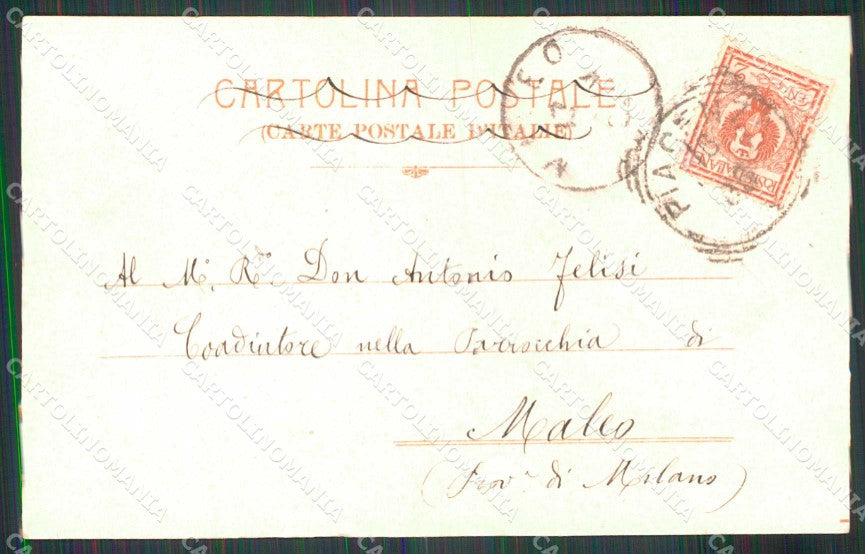 CARTOLINA POSTALE
(CARTE POSTALE D'ITALIE)
Al M.º R.do Don Antonio Felisi
Coadiutore nella Parrocchia di
Maleo
(Prov.a di Milano)
CARTOLINOMANIA